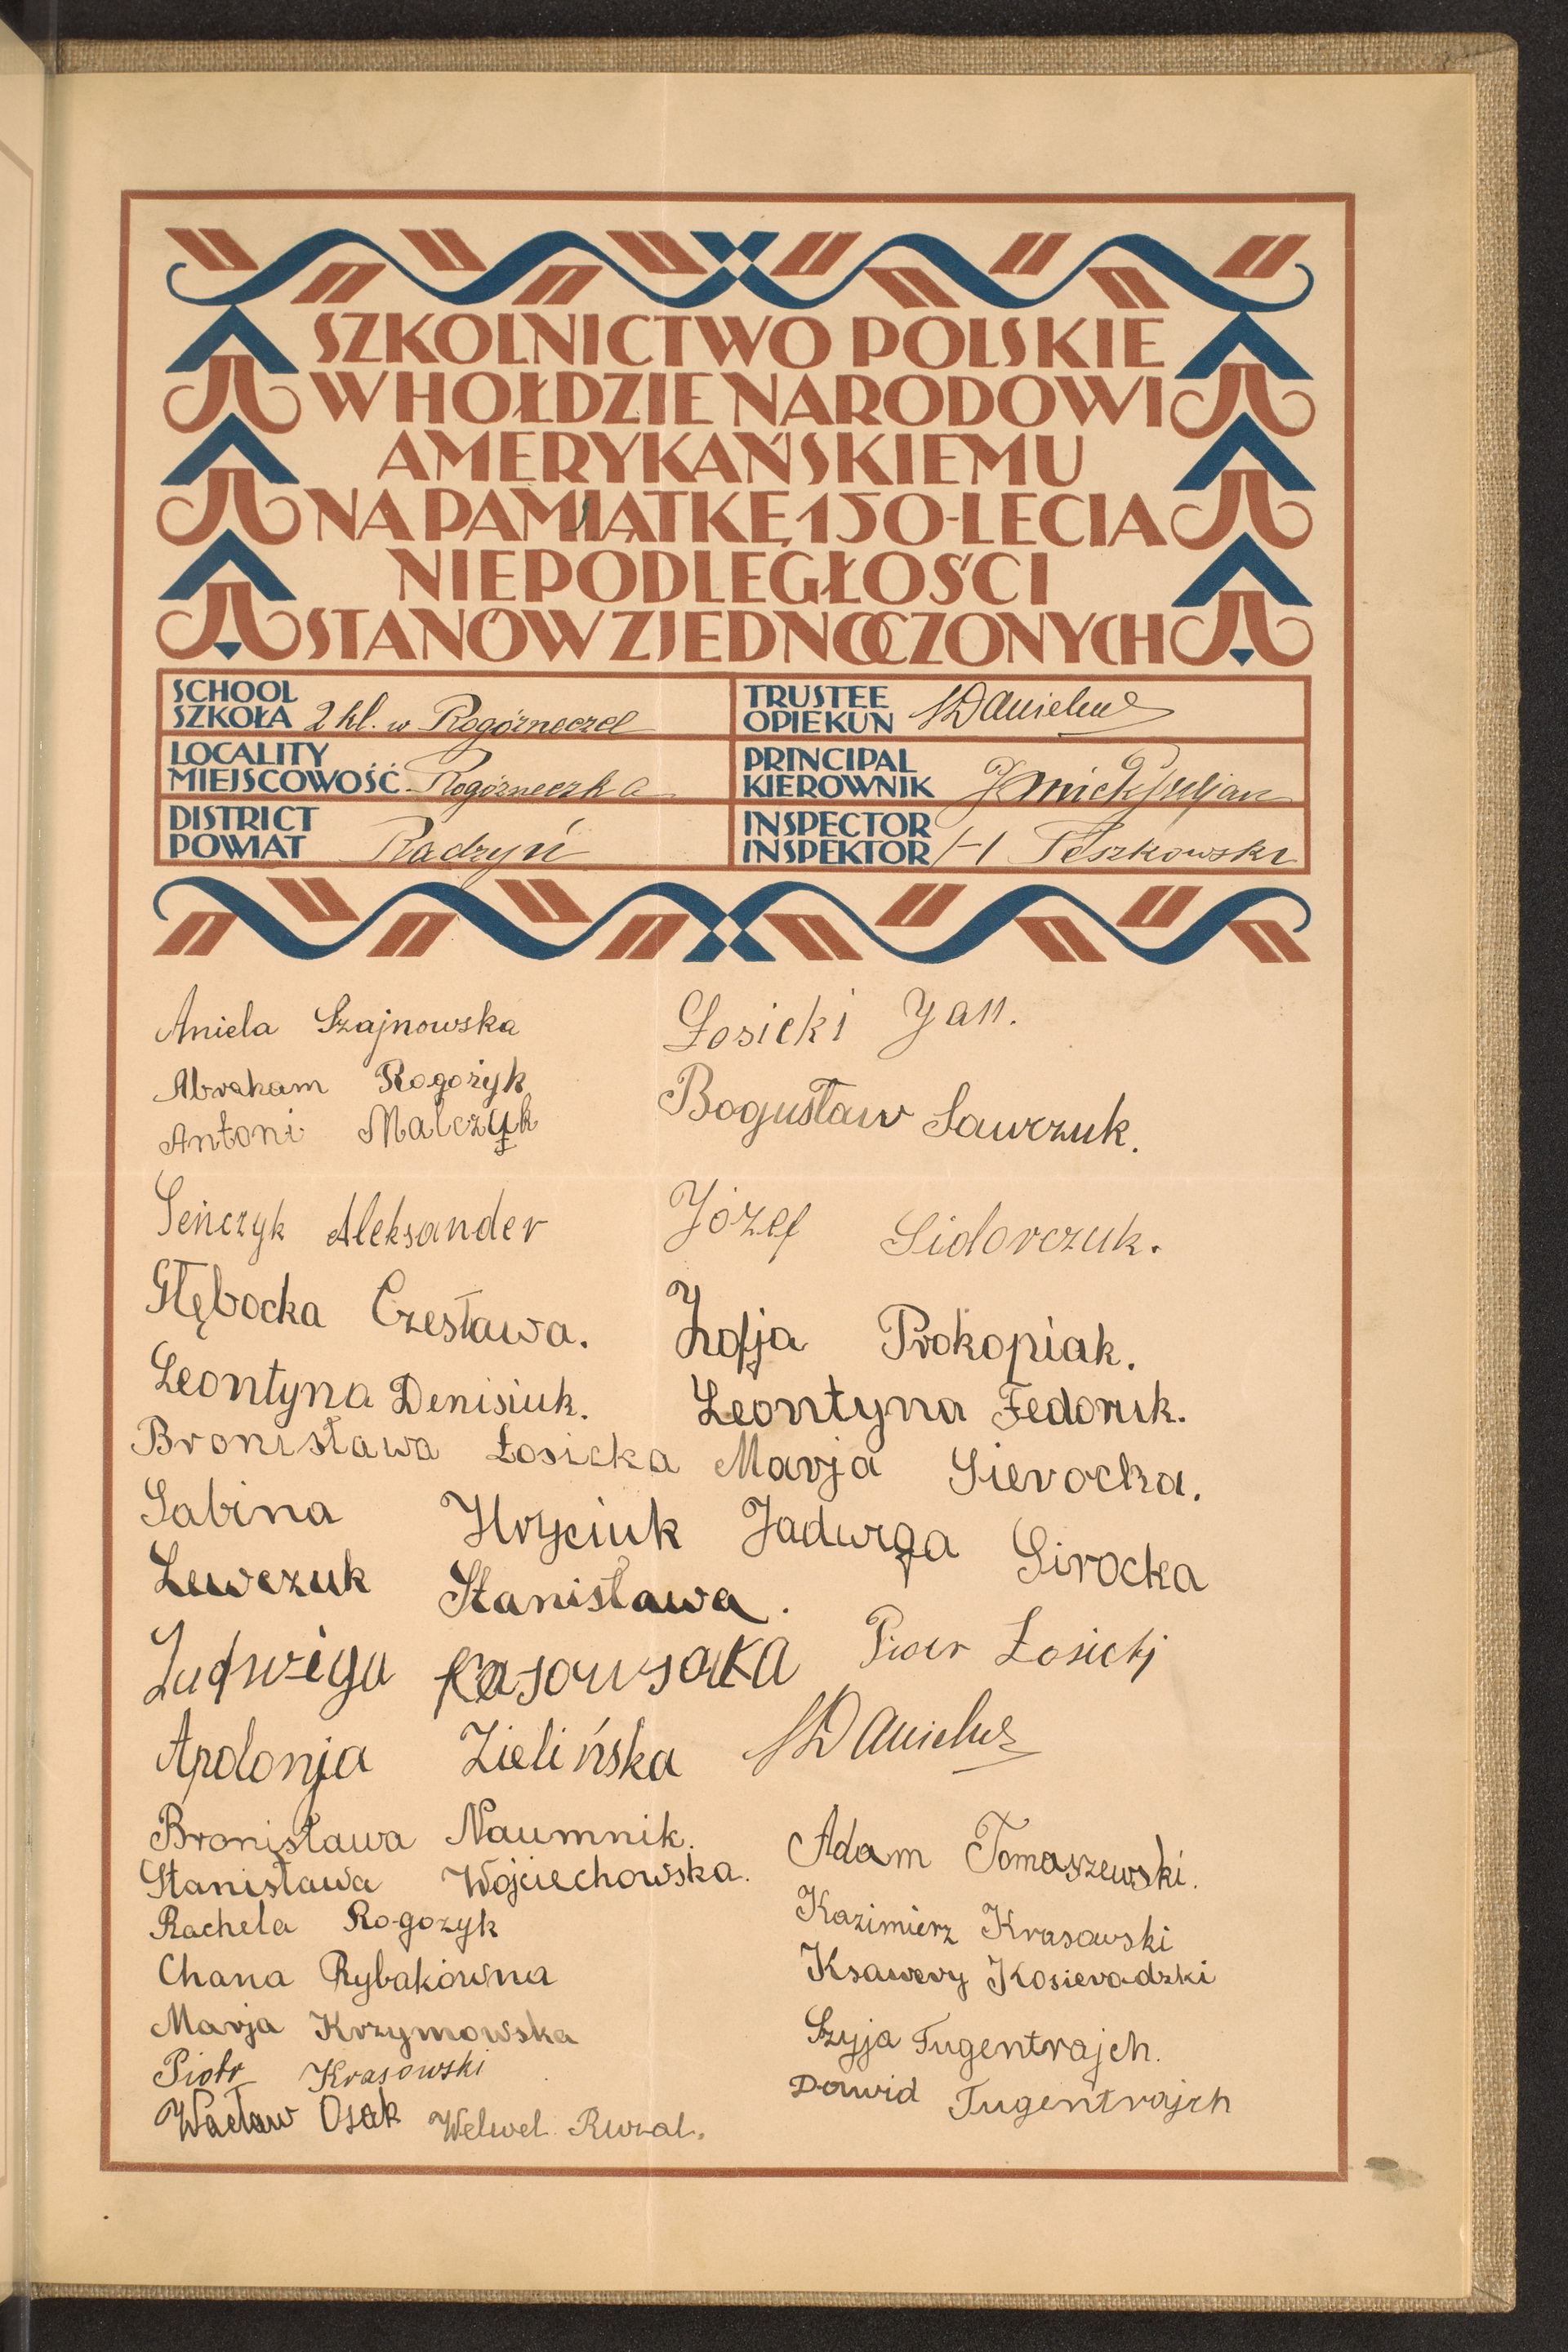 SZKOLNICTWO POLSKIE
W HOŁDZIE NARODOWI
AMERYKAŃSKIEMU
NA PAMIĄTKĘ 150-LECIA
NIEPODLEGŁOŚCI
STANÓW ZJEDNOCZONYCH
SCHOOL
SZKOŁA 2 kl. w Rogóźneczce
LOCALITY
MIEJSCOWOŚĆ Rogóźneczka
DISTRICT
POWIAT Radzyń
TRUSTEE
OPIEKUN
PRINCIPAL
KIEROWNIK Juljan
INSPECTOR
INSPEKTOR H Peszkowski
Aniela Szajnowska
Abraham Rogożyk
Antoni Malczyk
Seńczyk Aleksander
Głębocka Czesława.
Leontyna Denisiuk.
Bronisława Łosicka
Sabina Hryciuk
Lewczuk Stanisława.
Jadwiga
Apolonja Zielińska
Bronisława Naumnik.
Stanisława Wojciechowska.
Rachela Rogozyk
Chana Rybakówna
Marja Krzymowska
Piotr Krasowski
Wacław Osak Welwel
Łosicki Jan.
Bogusław Sawczuk.
Józef Sidorczuk.
Zofja Prokopiak.
Leontyna Fedoruk.
Marja Sierocka.
Jadwiga Sirocka
Piotr Łosicki
Adam Tomaszewski.
Kazimierz Krasowski
Ksawery Kosieradzki
Szyja Tugentrajch.
Dawid Tugentrajch